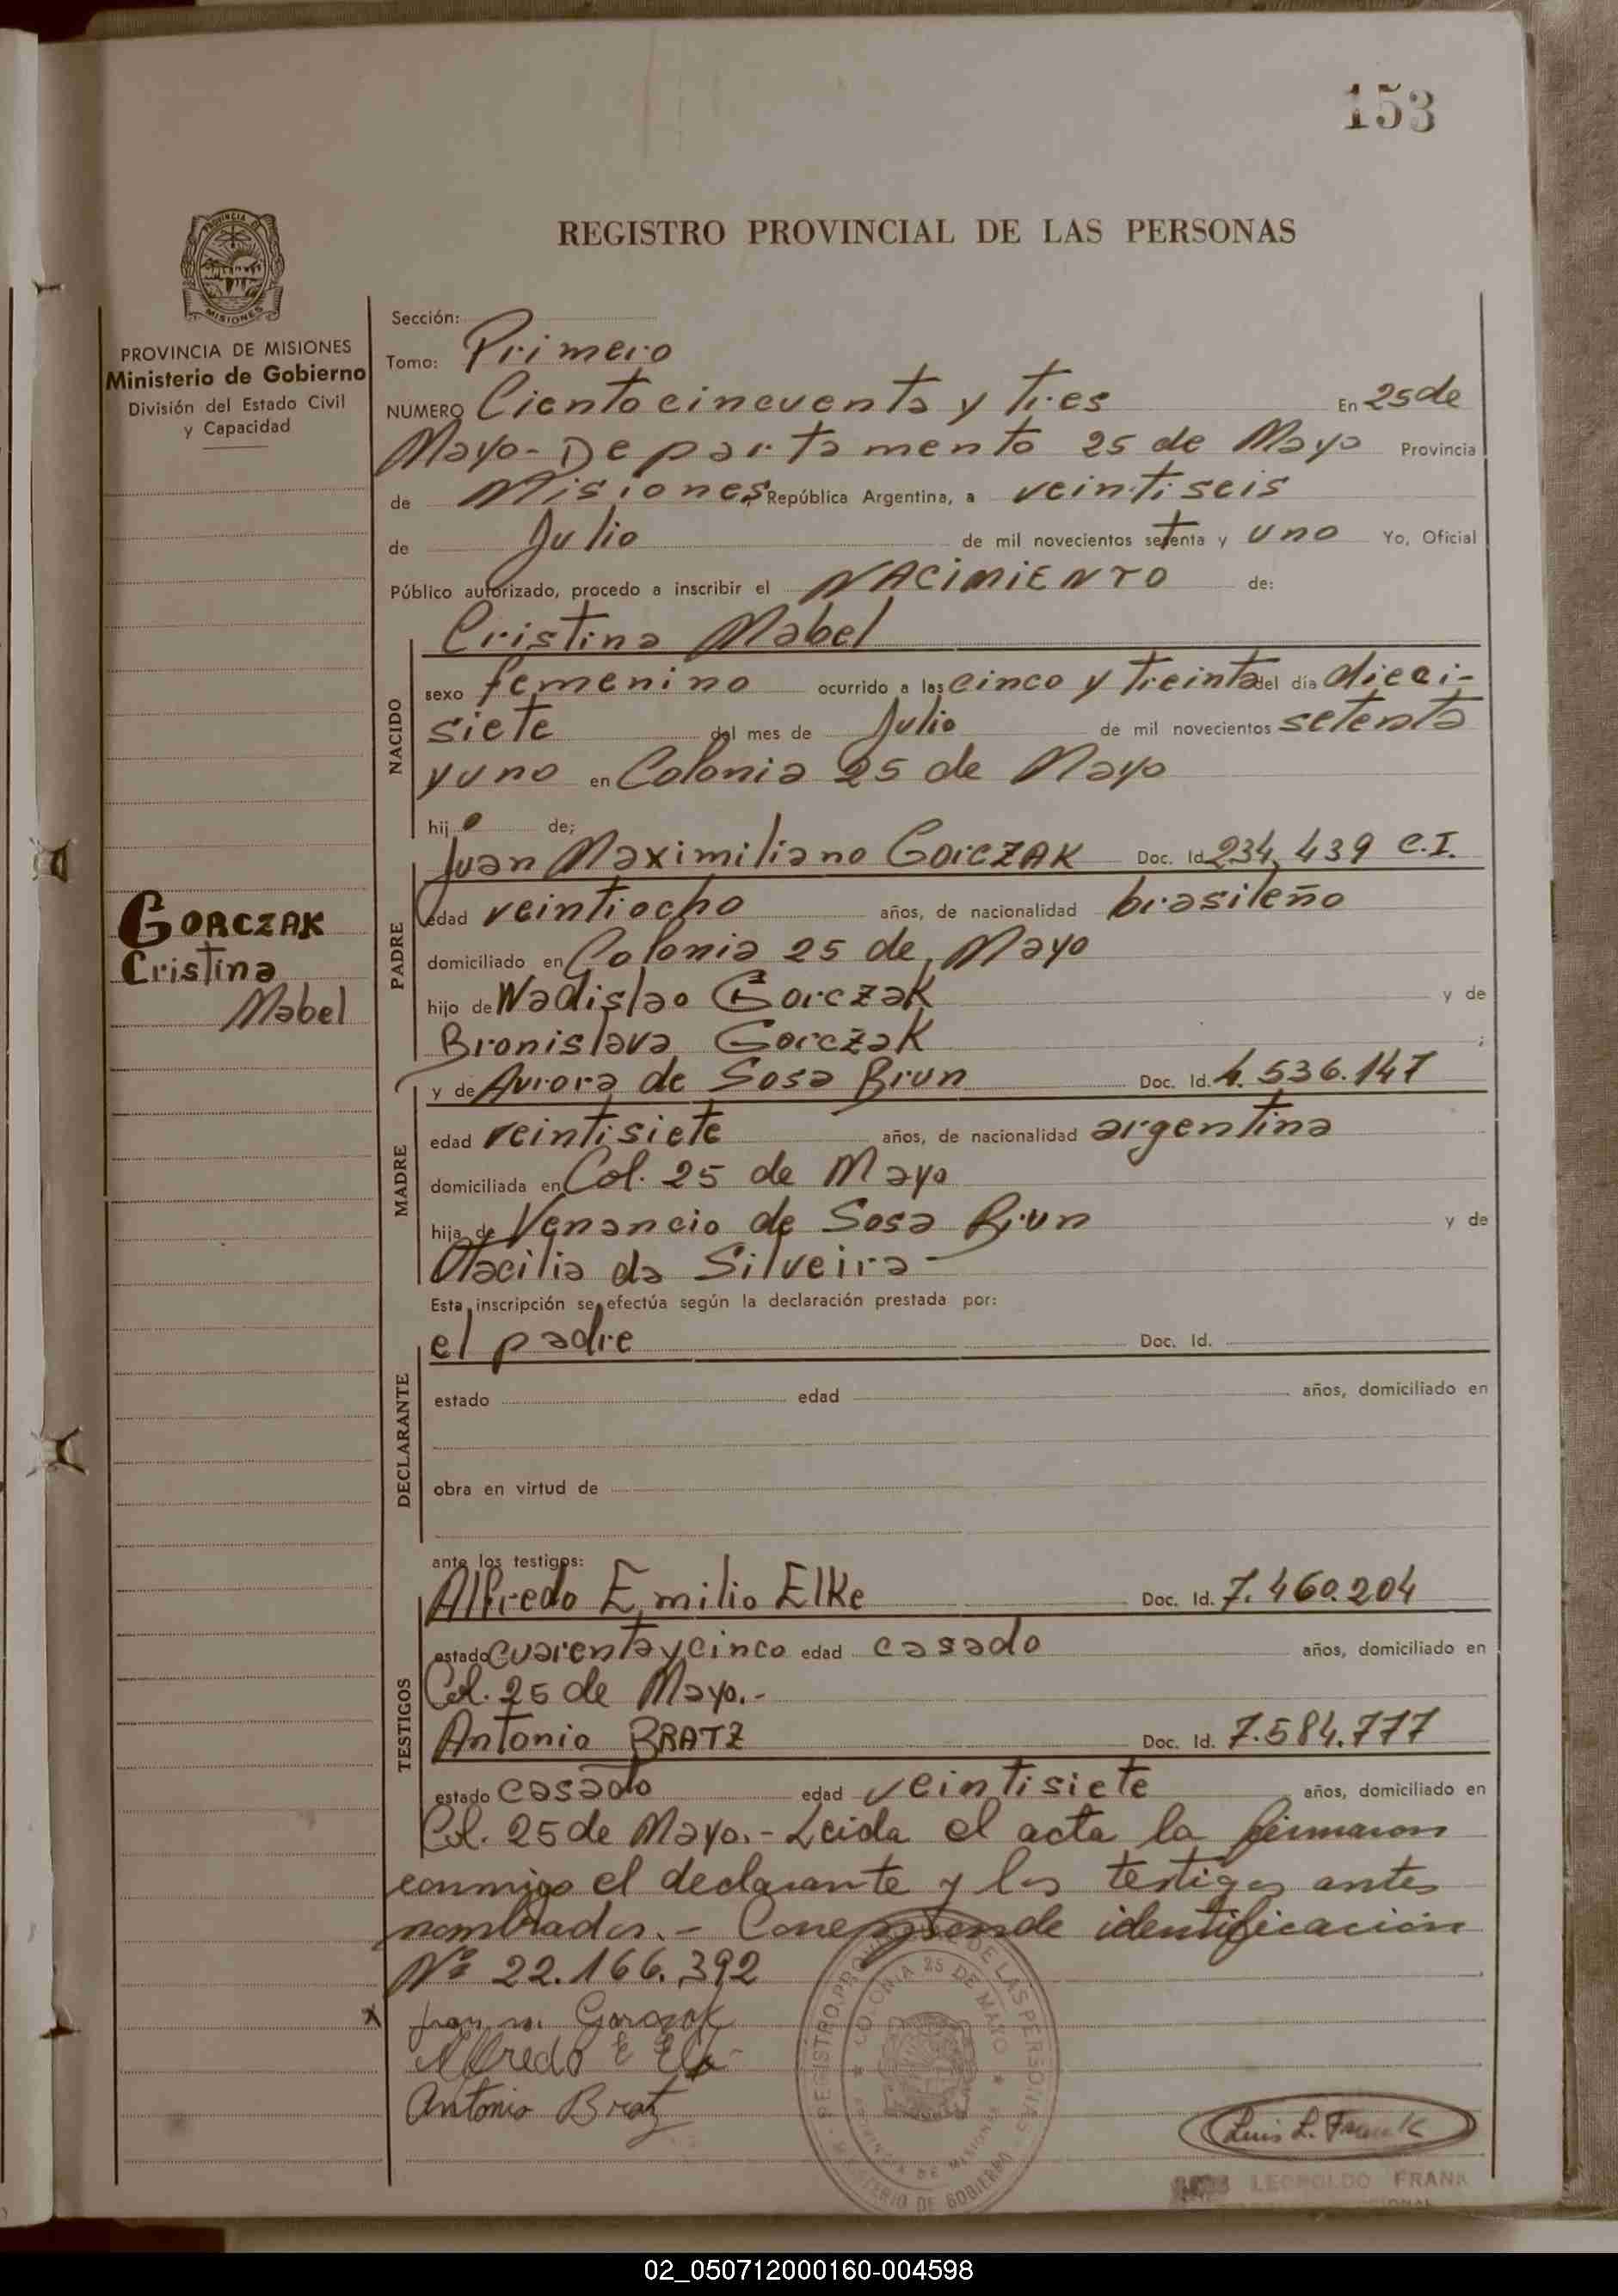 153
REGISTRO PROVINCIAL DE LAS PERSONAS
PROVINCIA DE
MISIONES
PROVINCIA DE MISIONES
Ministerio de Gobierno
División del Estado Civil
y Capacidad
GORCZAK
Cristina
Mabel
Sección:
Tomo: Primero
NUMERO Ciento cincuenta y tres En 25 de
Mayo - Departamento 25 de Mayo Provincia
de Misiones República Argentina, a veintiseis
de Julio de mil novecientos setenta y uno Yo, Oficial
Público autorizado, procedo a inscribir el NACIMIENTO de:
NACIDO
Cristina Mabel
sexo femenino ocurrido a las cinco y treinta del día dieci-
siete del mes de Julio de mil novecientos setenta
y uno en Colonia 25 de Mayo
hij de;
PADRE
Juan Maximiliano GorCZAK Doc. Id. 234,439 C.I.
edad veintiocho años, de nacionalidad brasileño
domiciliado en Colonia 25 de Mayo
hijo de Wadislao Gorczak y de
Bronislava Gorczak ;
MADRE
y de Aurora de Sosa Brun Doc. Id. 4.536.147
edad veintisiete años, de nacionalidad argentina
domiciliada en Col. 25 de Mayo
hija de Venancio de Sosa Brun y de
Otacilia da Silveira -
Esta inscripción se efectúa según la declaración prestada por:
DECLARANTE
el padre Doc. Id.
estado edad años, domiciliado en
obra en virtud de
ante los testigos:
TESTIGOS
Alfredo Emilio Elke Doc. Id. 7.460.204
estado cuarenta y cinco edad casado años, domiciliado en
Col. 25 de Mayo.-
Antonio BRATZ Doc. Id. 7.584.777
estado casado edad veintisiete años, domiciliado en
Col. 25 de Mayo.- Leida el acta la firmaron
conmigo el declarante y los testigos antes
nombrados.- Corresponde identificación
Nº 22.166.392
x Juan m. Gorczak
Alfredo E Elke
Antonio Bratz
REGISTRO PROVINCIAL DE LAS PERSONAS
COLONIA 25 DE MAYO
PROVINCIA DE MISIONES
MINISTERIO DE GOBIERNO
Luis L. Frank
LEOPOLDO FRANK
02_050712000160-004598